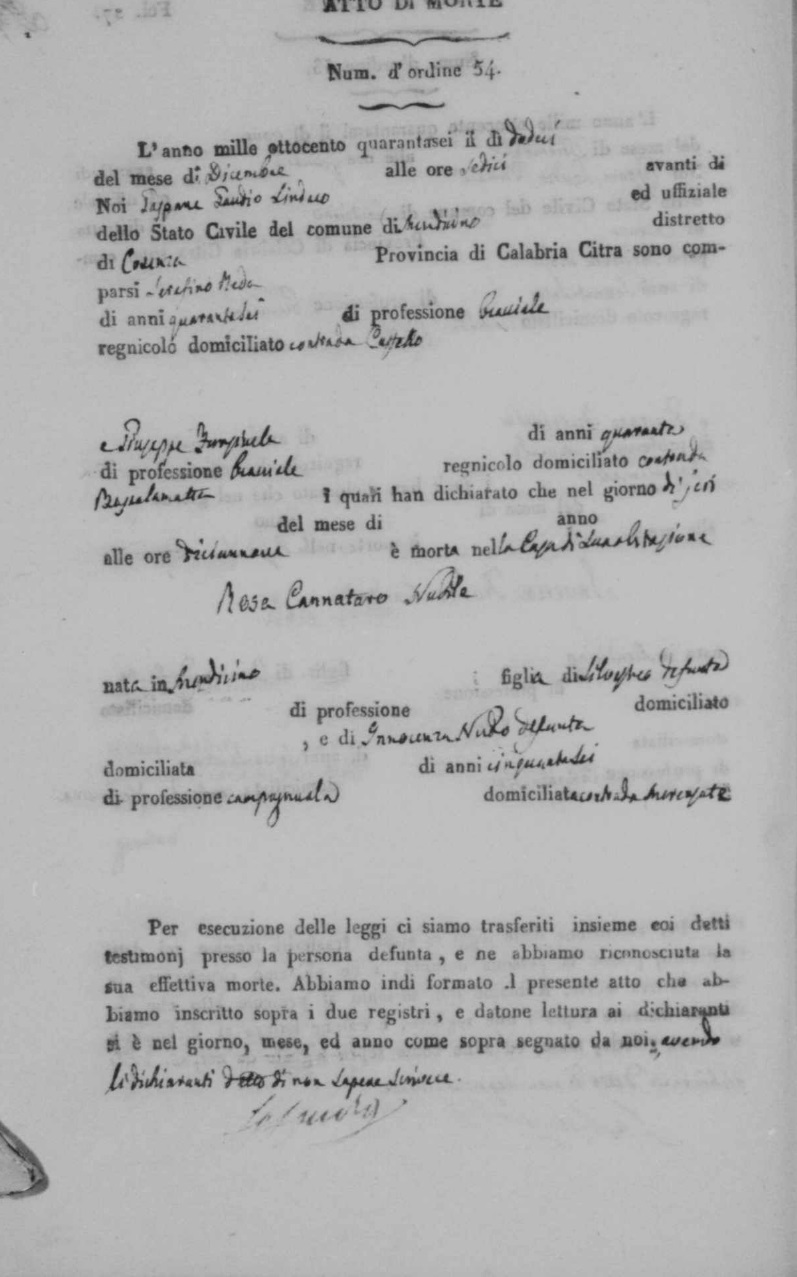 ATTO DI MORTE
Num. d' ordine 54.
L' anno mille ottocento quarantasei il dì dodici
del mese di Dicembre alle ore sedici avanti di
Noi Gaspare Gaudio Sindaco ed uffiziale
dello Stato Civile del comune di Mendicino distretto
di Cosenza Provincia di Calabria Citra sono com-
parsi Serafino Reda
di anni quarantasei di professione bracciale
regnicolo domiciliato contrada
e Giuseppe di anni quaranta
di professione bracciale regnicolo domiciliato contrada
I quali han dichiarato che nel giorno di jeri
del mese di anno
alle ore diciannove è morta nella Casa di sua abitazione
Rosa Cannataro Nubile
nata in Mendicino figlia di Silvestro defunto
di professione domiciliato
, e di Innocenza defunta
domiciliata di anni cinquantasei
di professione campagnuola domiciliata contrada
Per esecuzione delle leggi ci siamo trasferiti insieme coi detti
testimonj presso la persona defunta, e ne abbiamo riconosciuta la
sua effettiva morte. Abbiamo indi formato il presente atto che ab-
biamo inscritto sopra i due registri, e datone lettura ai dichiaranti
si è nel giorno, mese, ed anno come sopra segnato da noi, avendo
li dichiaranti detto di non sapere scrivere.